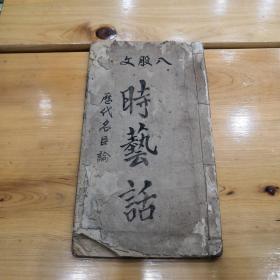 八股文
時藝話
歷代名臣論